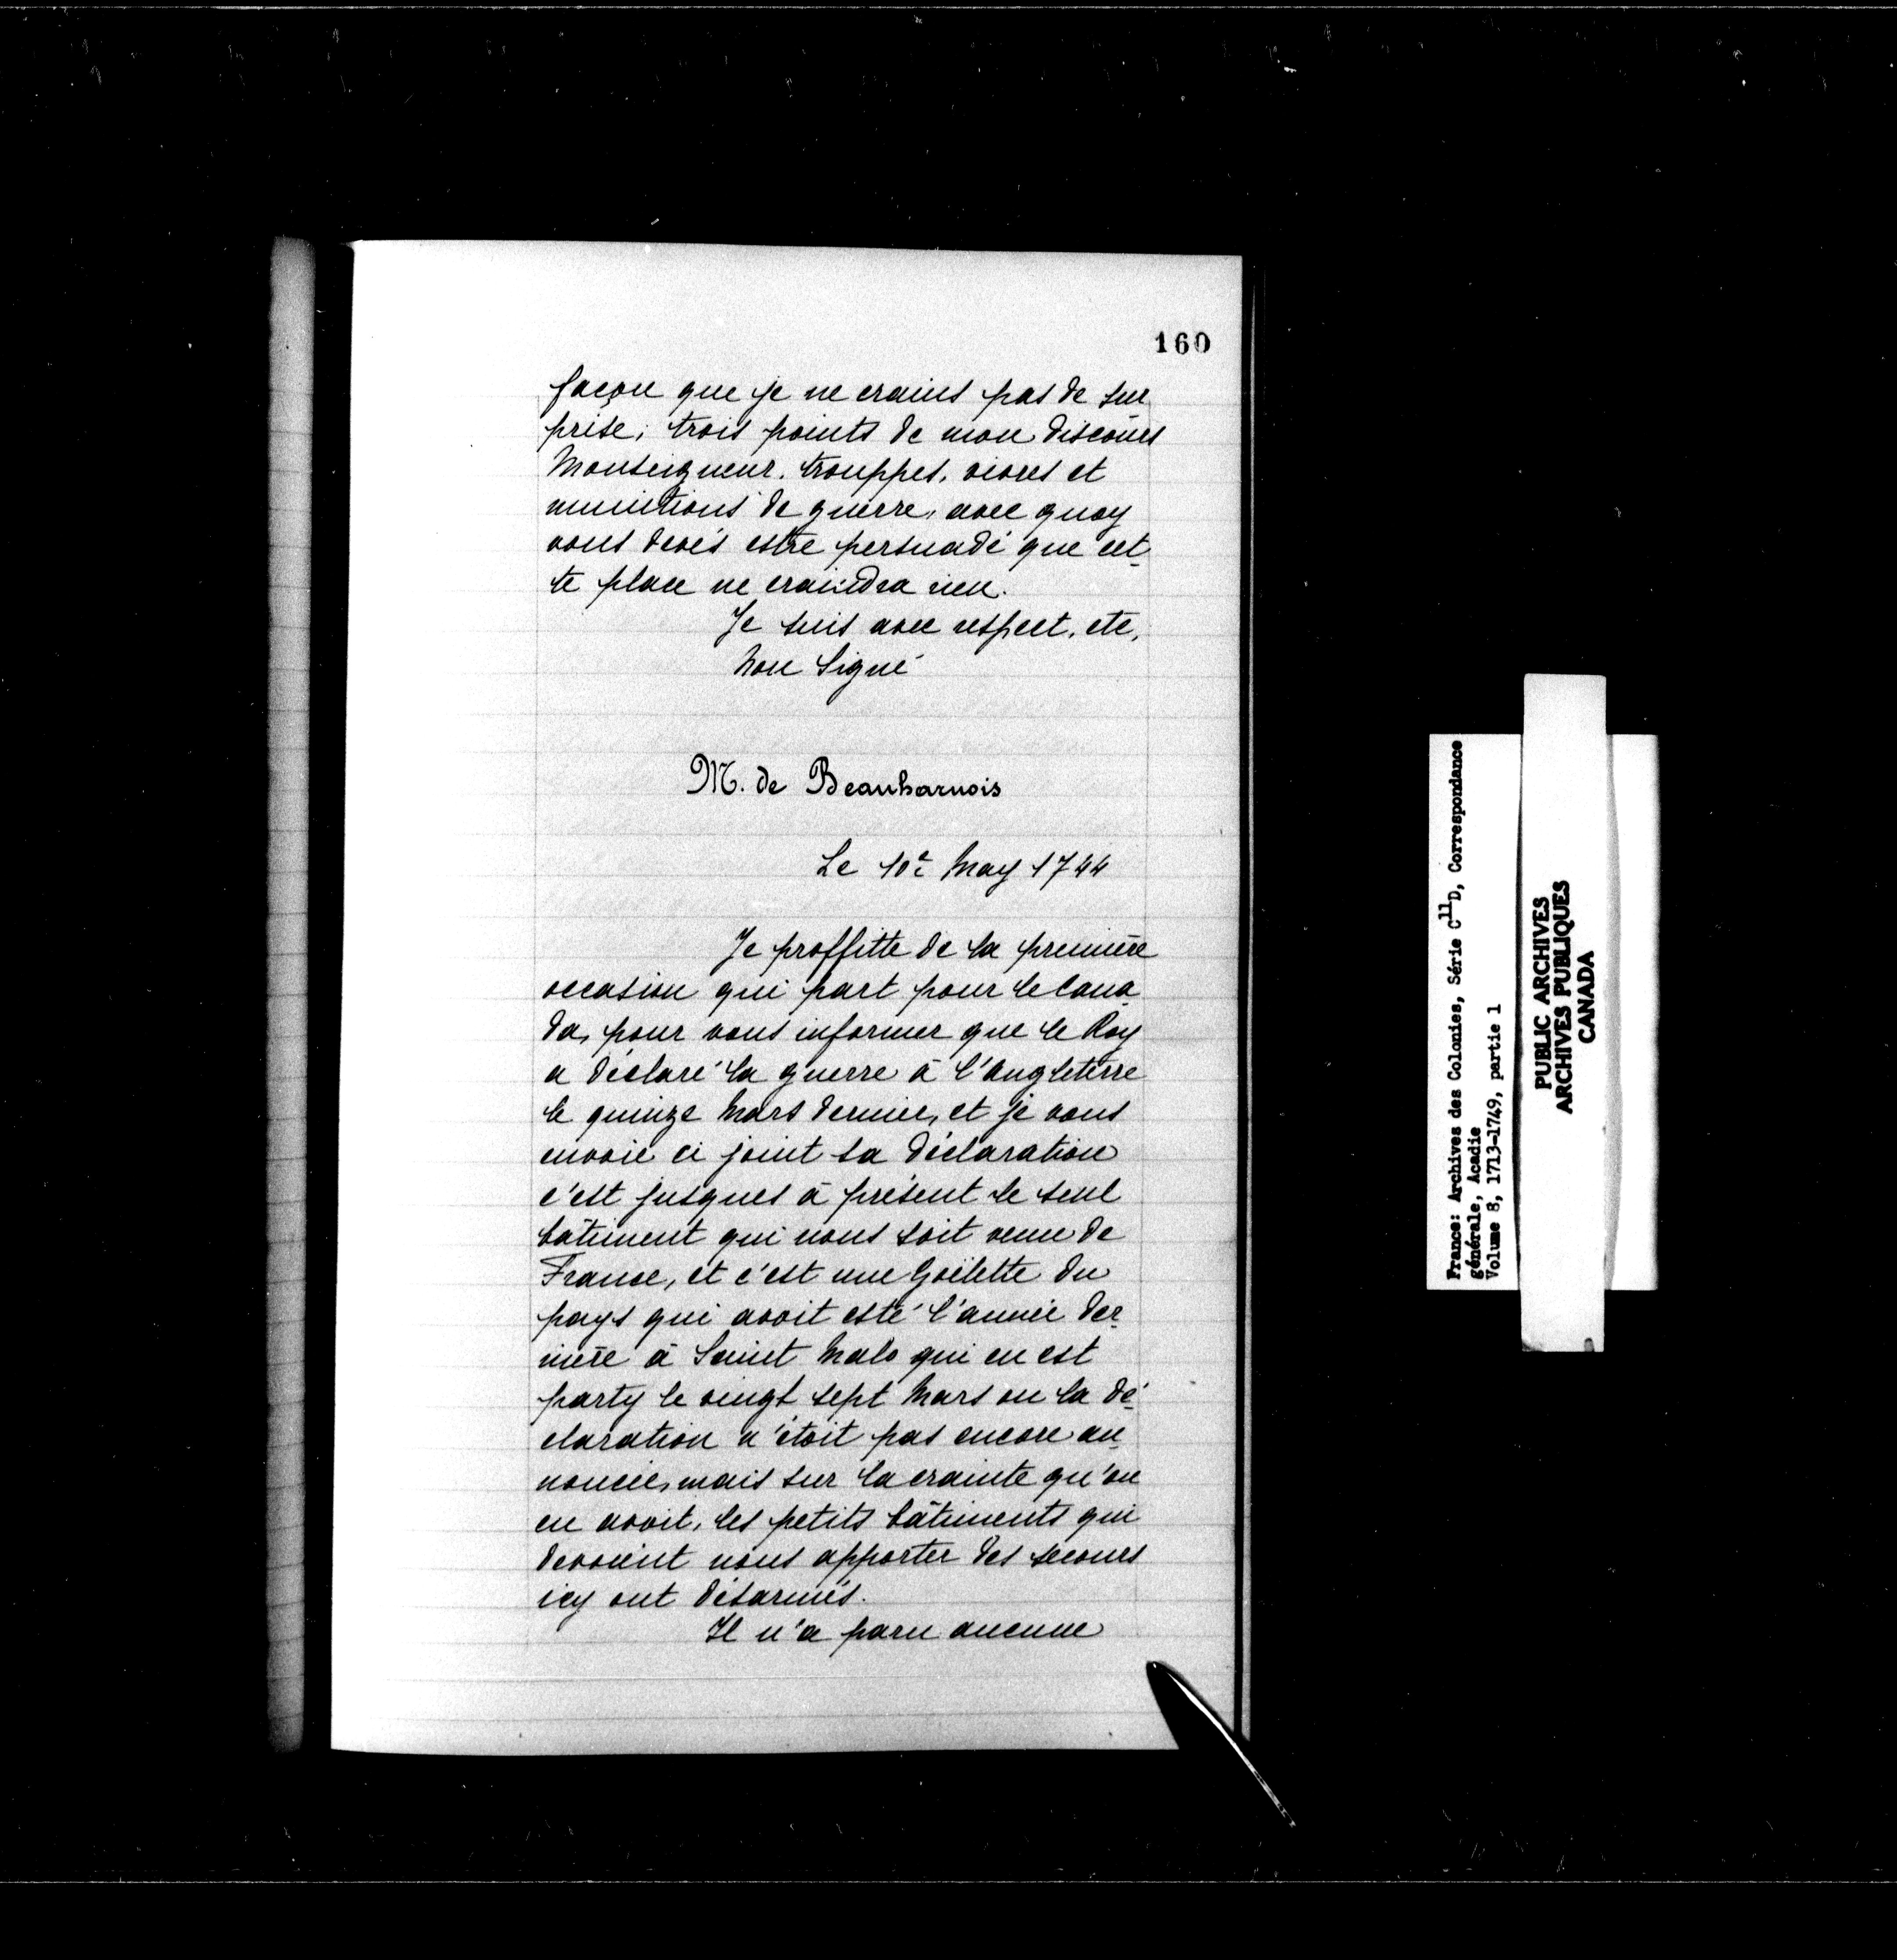 160
façon que je ne crains pas de sur
prise; trois points de mon discours
Monseigneur. trouppes, vivres et
munitions de guerre, avec quoy
vous devés estre persuadé que cet-
te place ne craindra rien.
Je suis avec respect, etc,
Non Signé
M. de Beauharnois
Le 10e May 1744
Je proffitte de la première
occasion qui part pour le Cana
da, pour vous informer que le Roy
a déclaré la guerre à l'Angleterre
le quinze Mars dernier, et je vous
envoie ci joint sa déclaration
c'est jusques à présent le seul
bâtiment qui nous soit venu de
France, et c'est une Goëlette du
pays qui avoit esté l'année der-
nière à Saint Malo qui en est
party le vingt sept Mars ou la dé-
claration n'étoit pas encore an-
noncée, mais sur la crainte qu'on
en avoit, les petits bâtiments qui
devoient nous apporter des secours
icy ont désarmés.
Il n'a paru aucune
France: Archives des Colonies, Série C11D, Correspondance
générale, Acadie
Volume 8, 1713-1749, partie 1
PUBLIC ARCHIVES
ARCHIVES PUBLIQUES
CANADA